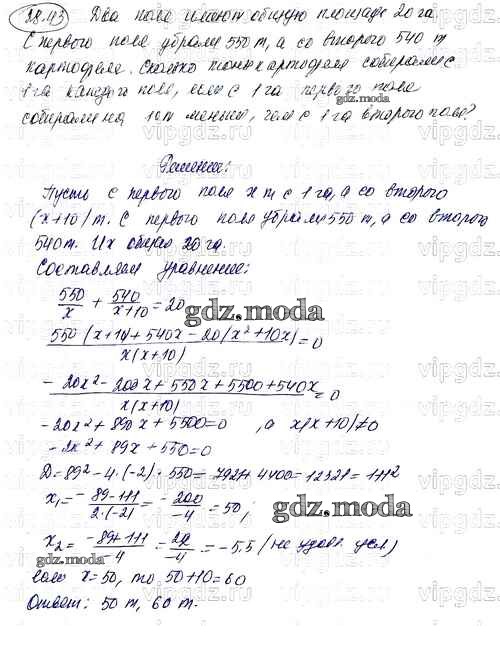 28.43 Два поля имеют общую площадь 20 га.
С первого поля убрали 550 т, а со второго 540 т
картофеля. Сколько тонн картофеля собирали с
1 га каждого поля, если с 1 га первого поля
собирали на 10 т меньше, чем с 1 га второго поля?
Решение:
Пусть с первого поля x т с 1 га, а со второго
(x+10) т. С первого поля убрали 550 т, а со второго
540 т. Их общая 20 га.
Составляем уравнение:
550/x + 540/(x+10) = 20
(550(x+10)+540x-20(x²+10x))/(x(x+10)) = 0
(-20x²-200x+550x+5500+540x)/(x(x+10)) = 0
-20x²+890x+5500=0, а x(x+10)≠0
-2x²+89x+550=0
D=89²-4·(-2)·550=7921+4400=12321=111²
x₁=(-89-111)/(2·(-2))=-200/-4=50;
x₂=(-89+111)/-4=22/-4=-5,5 (не удовл. усл.)
Если x=50, то 50+10=60
Ответ: 50 т, 60 т.
gdz.moda
gdz.moda
gdz.moda
gdz.moda
vipgdz